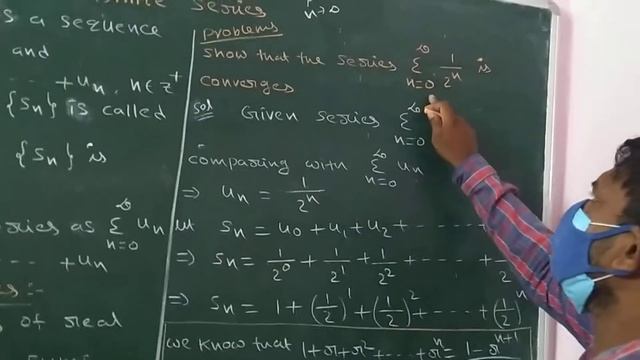 series
n→0
s a sequence
and
... + un, n∈z+
{sn} is called
{sn} is
series as ∑ un
n=0
... + un
s of real
problems
show that the series ∞∑n=0 1/2^n is
converges
sol Given series ∞∑n=0
comparing with ∞∑n=0 un
⇒ un = 1/2^n
let sn = u0 + u1 + u2 + ...
⇒ sn = 1/2^0 + 1/2^1 + 1/2^2 + ...
⇒ sn = 1 + (1/2)^1 + (1/2)^2 + ... + (1/2)^n
we know that 1+r+r^2+...+r^n = 1-r^n+1